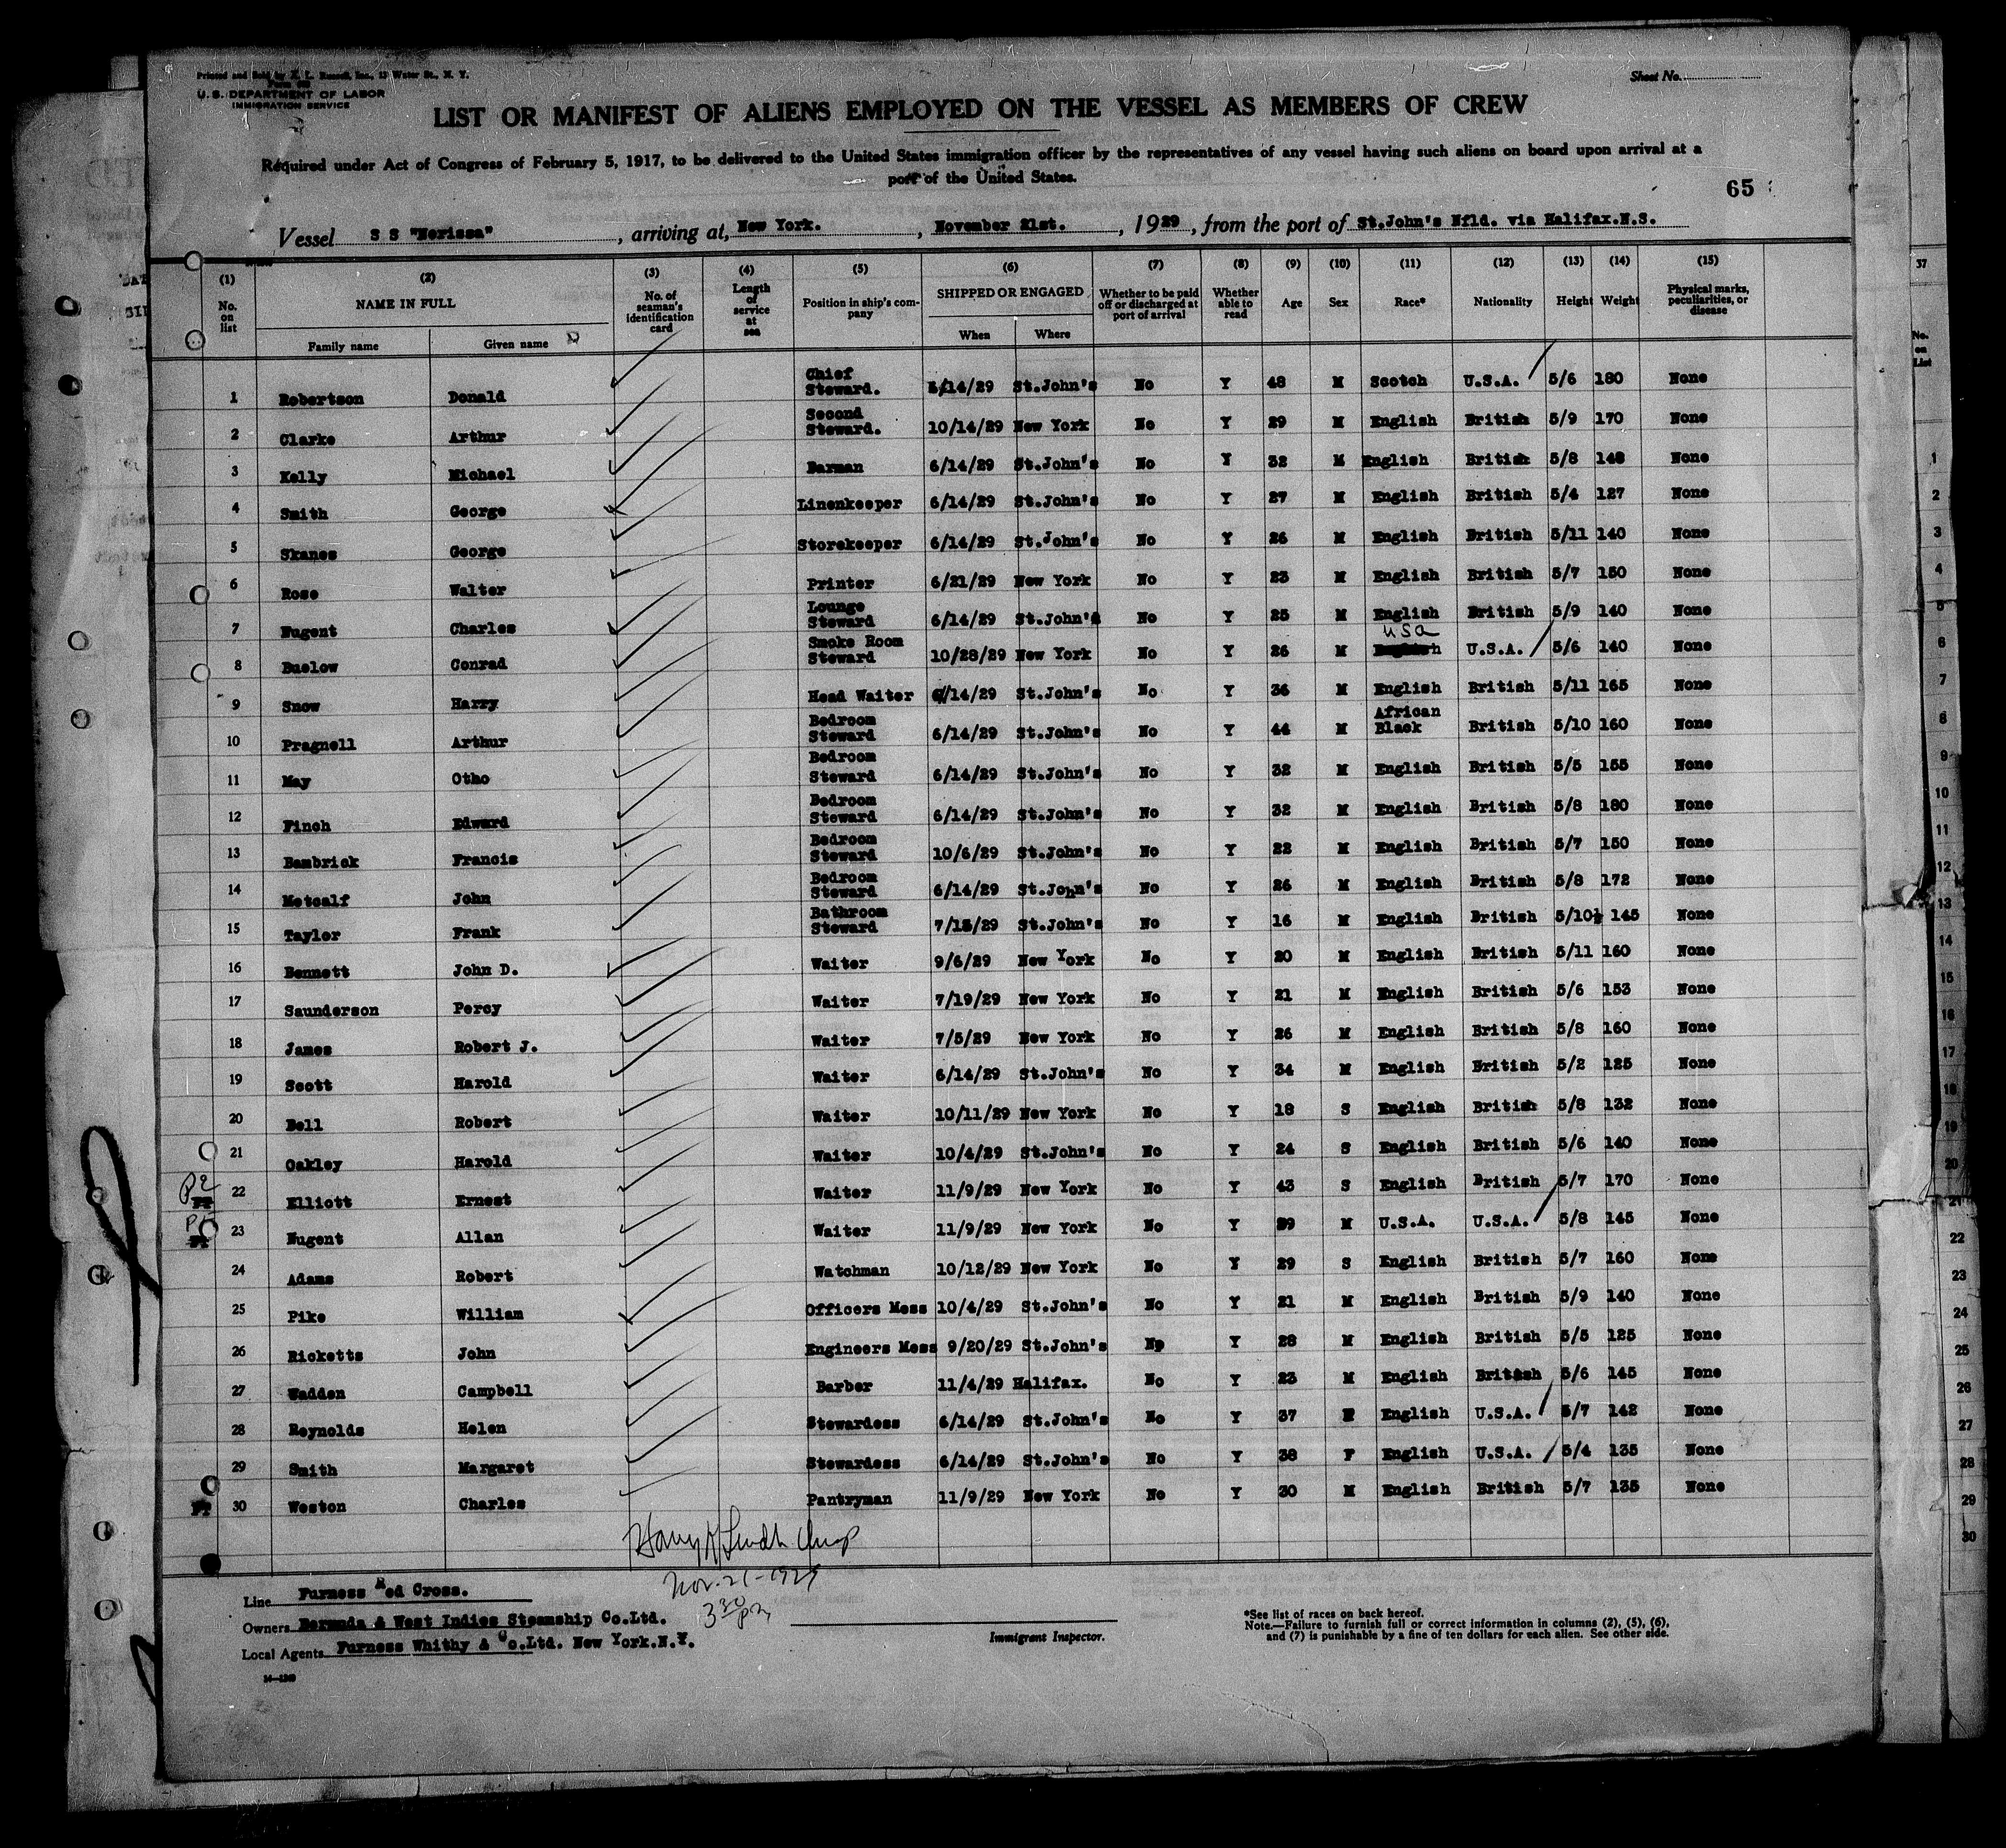 Sheet No.
U. S. DEPARTMENT OF LABOR
IMMIGRATION SERVICE
LIST OR MANIFEST OF ALIENS EMPLOYED ON THE VESSEL AS MEMBERS OF CREW
Required under Act of Congress of February 5, 1917, to be delivered to the United States immigration officer by the representatives of any vessel having such aliens on board upon arrival at a
port of the United States.
65
Vessel S S "Nerissa", arriving at, New York., November 21st., 1929, from the port of St.John's Nfld. via Halifax.N.S.
(1) (2) (3) (4) (5) (6) (7) (8) (9) (10) (11) (12) (13) (14) (15)
No. on list NAME IN FULL Family name Given name No. of seaman's identification card Length of service at sea Position in ship's company SHIPPED OR ENGAGED When Where Whether to be paid off or discharged at port of arrival Whether able to read Age Sex Race* Nationality Height Weight Physical marks, peculiarities, or disease
1 Robertson Donald Chief Steward. 6/14/29 St.John's No Y 48 M Scotch U.S.A. 5/6 180 None
2 Clarke Arthur Second Steward. 10/14/29 New York No Y 29 M English British 5/9 170 None
3 Kelly Michael Barman 6/14/29 St.John's No Y 32 M English British 5/8 148 None
4 Smith George Linenkeeper 6/14/29 St.John's No Y 27 M English British 5/4 127 None
5 Skanes George Storekeeper 6/14/29 St.John's No Y 26 M English British 5/11 140 None
6 Rose Walter Printer 6/21/29 New York No Y 23 M English British 5/7 150 None
7 Nugent Charles Lounge Steward 6/14/29 St.John's No Y 25 M English British 5/9 140 None
8 Buelow Conrad Smoke Room Steward 10/28/29 New York No Y 26 M USA U.S.A. 5/6 140 None
9 Snow Harry Head Waiter 6/14/29 St.John's No Y 36 M English British 5/11 165 None
10 Pragnell Arthur Bedroom Steward 6/14/29 St.John's No Y 44 M African Black British 5/10 160 None
11 May Otho Bedroom Steward 6/14/29 St.John's No Y 32 M English British 5/5 155 None
12 Finch Edward Bedroom Steward 6/14/29 St.John's No Y 32 M English British 5/8 180 None
13 Bambrick Francis Bedroom Steward 10/6/29 St.John's No Y 22 M English British 5/7 150 None
14 Metcalf John Bedroom Steward 6/14/29 St.John's No Y 26 M English British 5/8 172 None
15 Taylor Frank Bathroom Steward 7/15/29 St.John's No Y 16 M English British 5/10½ 145 None
16 Bennett John D. Waiter 9/6/29 New York No Y 20 M English British 5/11 160 None
17 Saunderson Percy Waiter 7/19/29 New York No Y 21 M English British 5/6 153 None
18 James Robert J. Waiter 7/5/29 New York No Y 26 M English British 5/8 160 None
19 Scott Harold Waiter 6/14/29 St.John's No Y 34 M English British 5/2 125 None
20 Bell Robert Waiter 10/11/29 New York No Y 18 S English British 5/8 132 None
21 Oakley Harold Waiter 10/4/29 St.John's No Y 24 S English British 5/6 140 None
P2 22 Elliott Ernest Waiter 11/9/29 New York No Y 43 S English British 5/7 170 None
23 Nugent Allan Waiter 11/9/29 New York No Y 29 M U.S.A. U.S.A. 5/8 145 None
24 Adams Robert Watchman 10/12/29 New York No Y 29 S English British 5/7 160 None
25 Pike William Officers Mess 10/4/29 St.John's No Y 21 M English British 5/9 140 None
26 Ricketts John Engineers Mess 9/20/29 St.John's No Y 28 M English British 5/5 125 None
27 Wadden Campbell Barber 11/4/29 Halifax. No Y 23 M English British 5/6 145 None
28 Reynolds Helen Stewardess 6/14/29 St.John's No Y 37 F English U.S.A. 5/7 142 None
29 Smith Margaret Stewardess 6/14/29 St.John's No Y 38 F English U.S.A. 5/4 135 None
30 Weston Charles Pantryman 11/9/29 New York No Y 30 M English British 5/7 135 None
Nov. 21-1929
3 30 pm
Line Furness Red Cross.
Owners Bermuda & West Indies Steamship Co.Ltd.
Local Agents Furness Whithy & Co.Ltd. New York.N.Y.
Immigrant Inspector.
*See list of races on back hereof.
Note.—Failure to furnish full or correct information in columns (2), (5), (6),
and (7) is punishable by a fine of ten dollars for each alien. See other side.